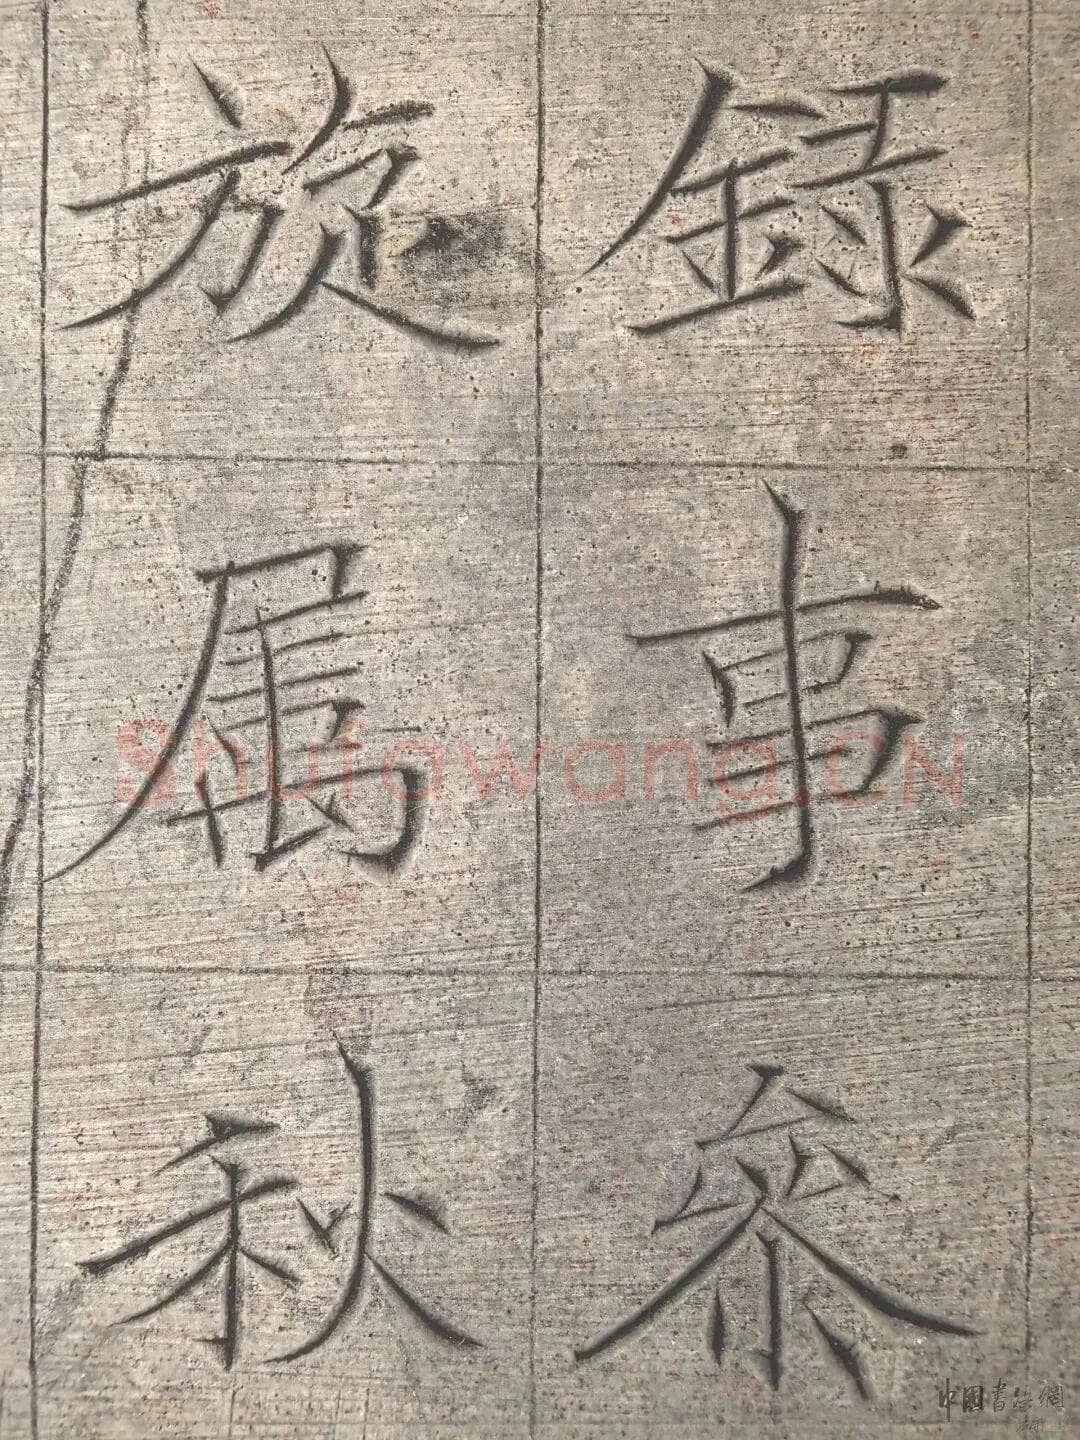 録事叅
旋屬秋
Shufawang.CN
中国書法網